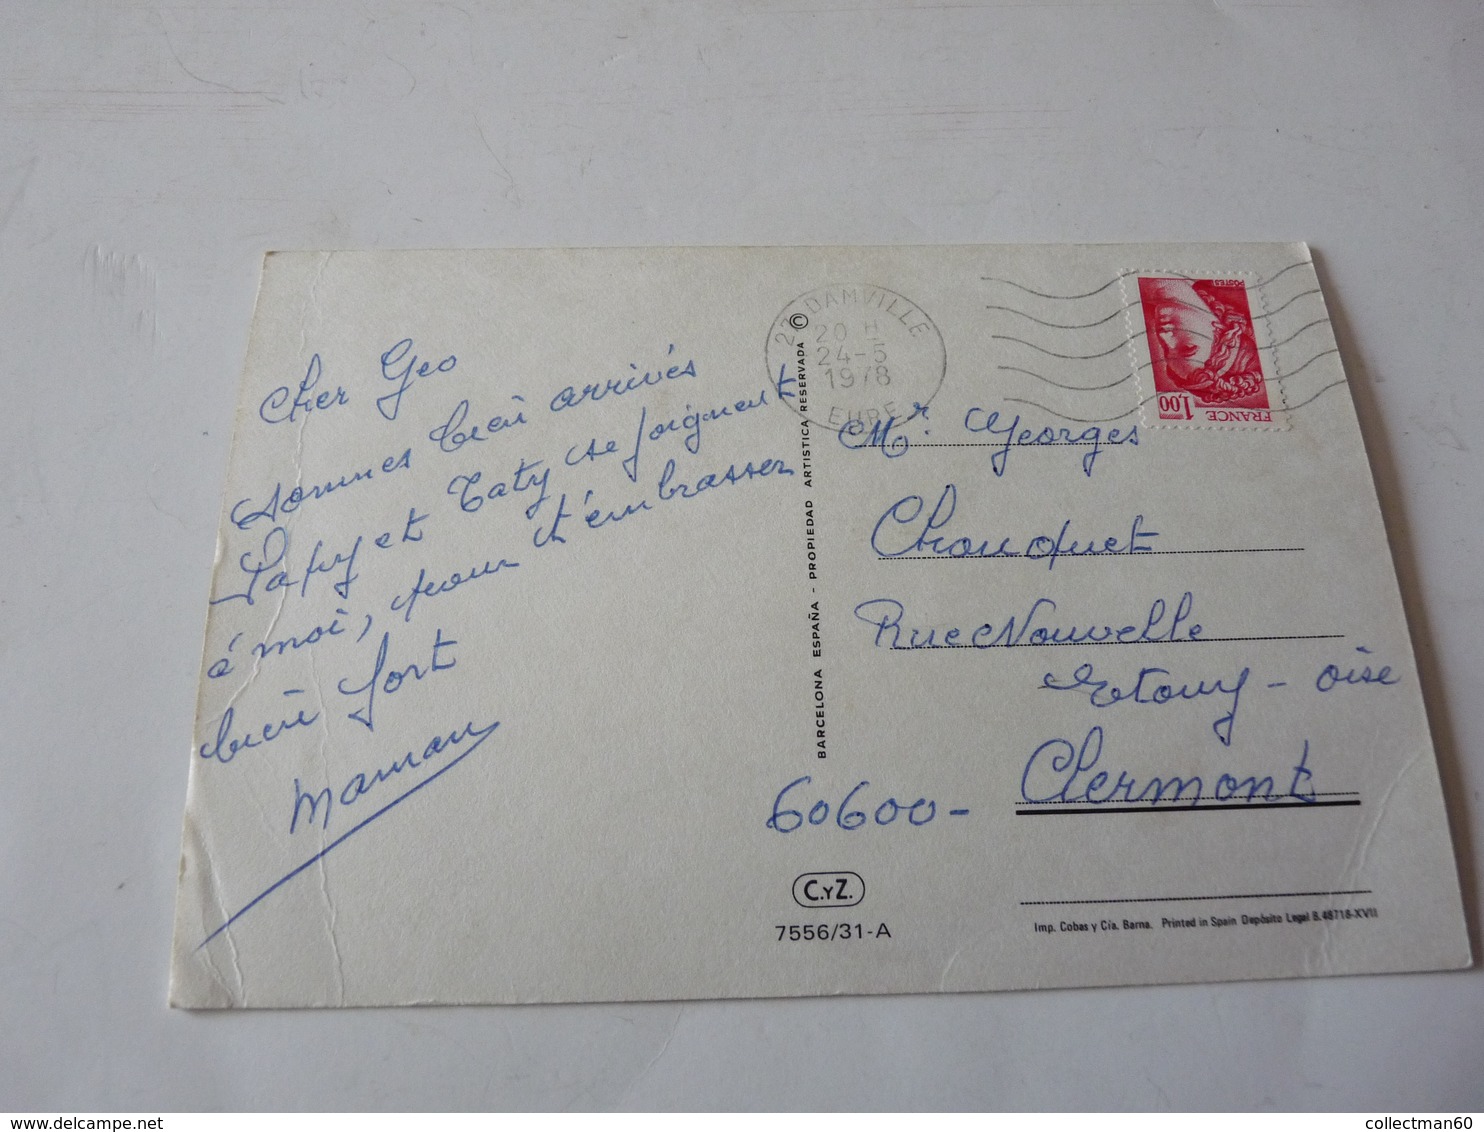 Cher Geo
sommes bien arrivés
Papy et Taty se joignent
à moi, pour t'embrasser
bien fort
Maman
27 DAMVILLE
20 H
24-5
1978
EURE
POSTES
1,00
FRANCE
BARCELONA ESPAÑA - PROPIEDAD ARTISTICA RESERVADA ©
Mr. Georges
Chouquet
Rue Nouvelle
Etouy - Oise
60600- Clermont
C.YZ.
7556/31-A
Imp. Cobas y Cía. Barna. Printed in Spain Depósito Legal B. 48718-XVII
https://www.delcampe.net
collectman60